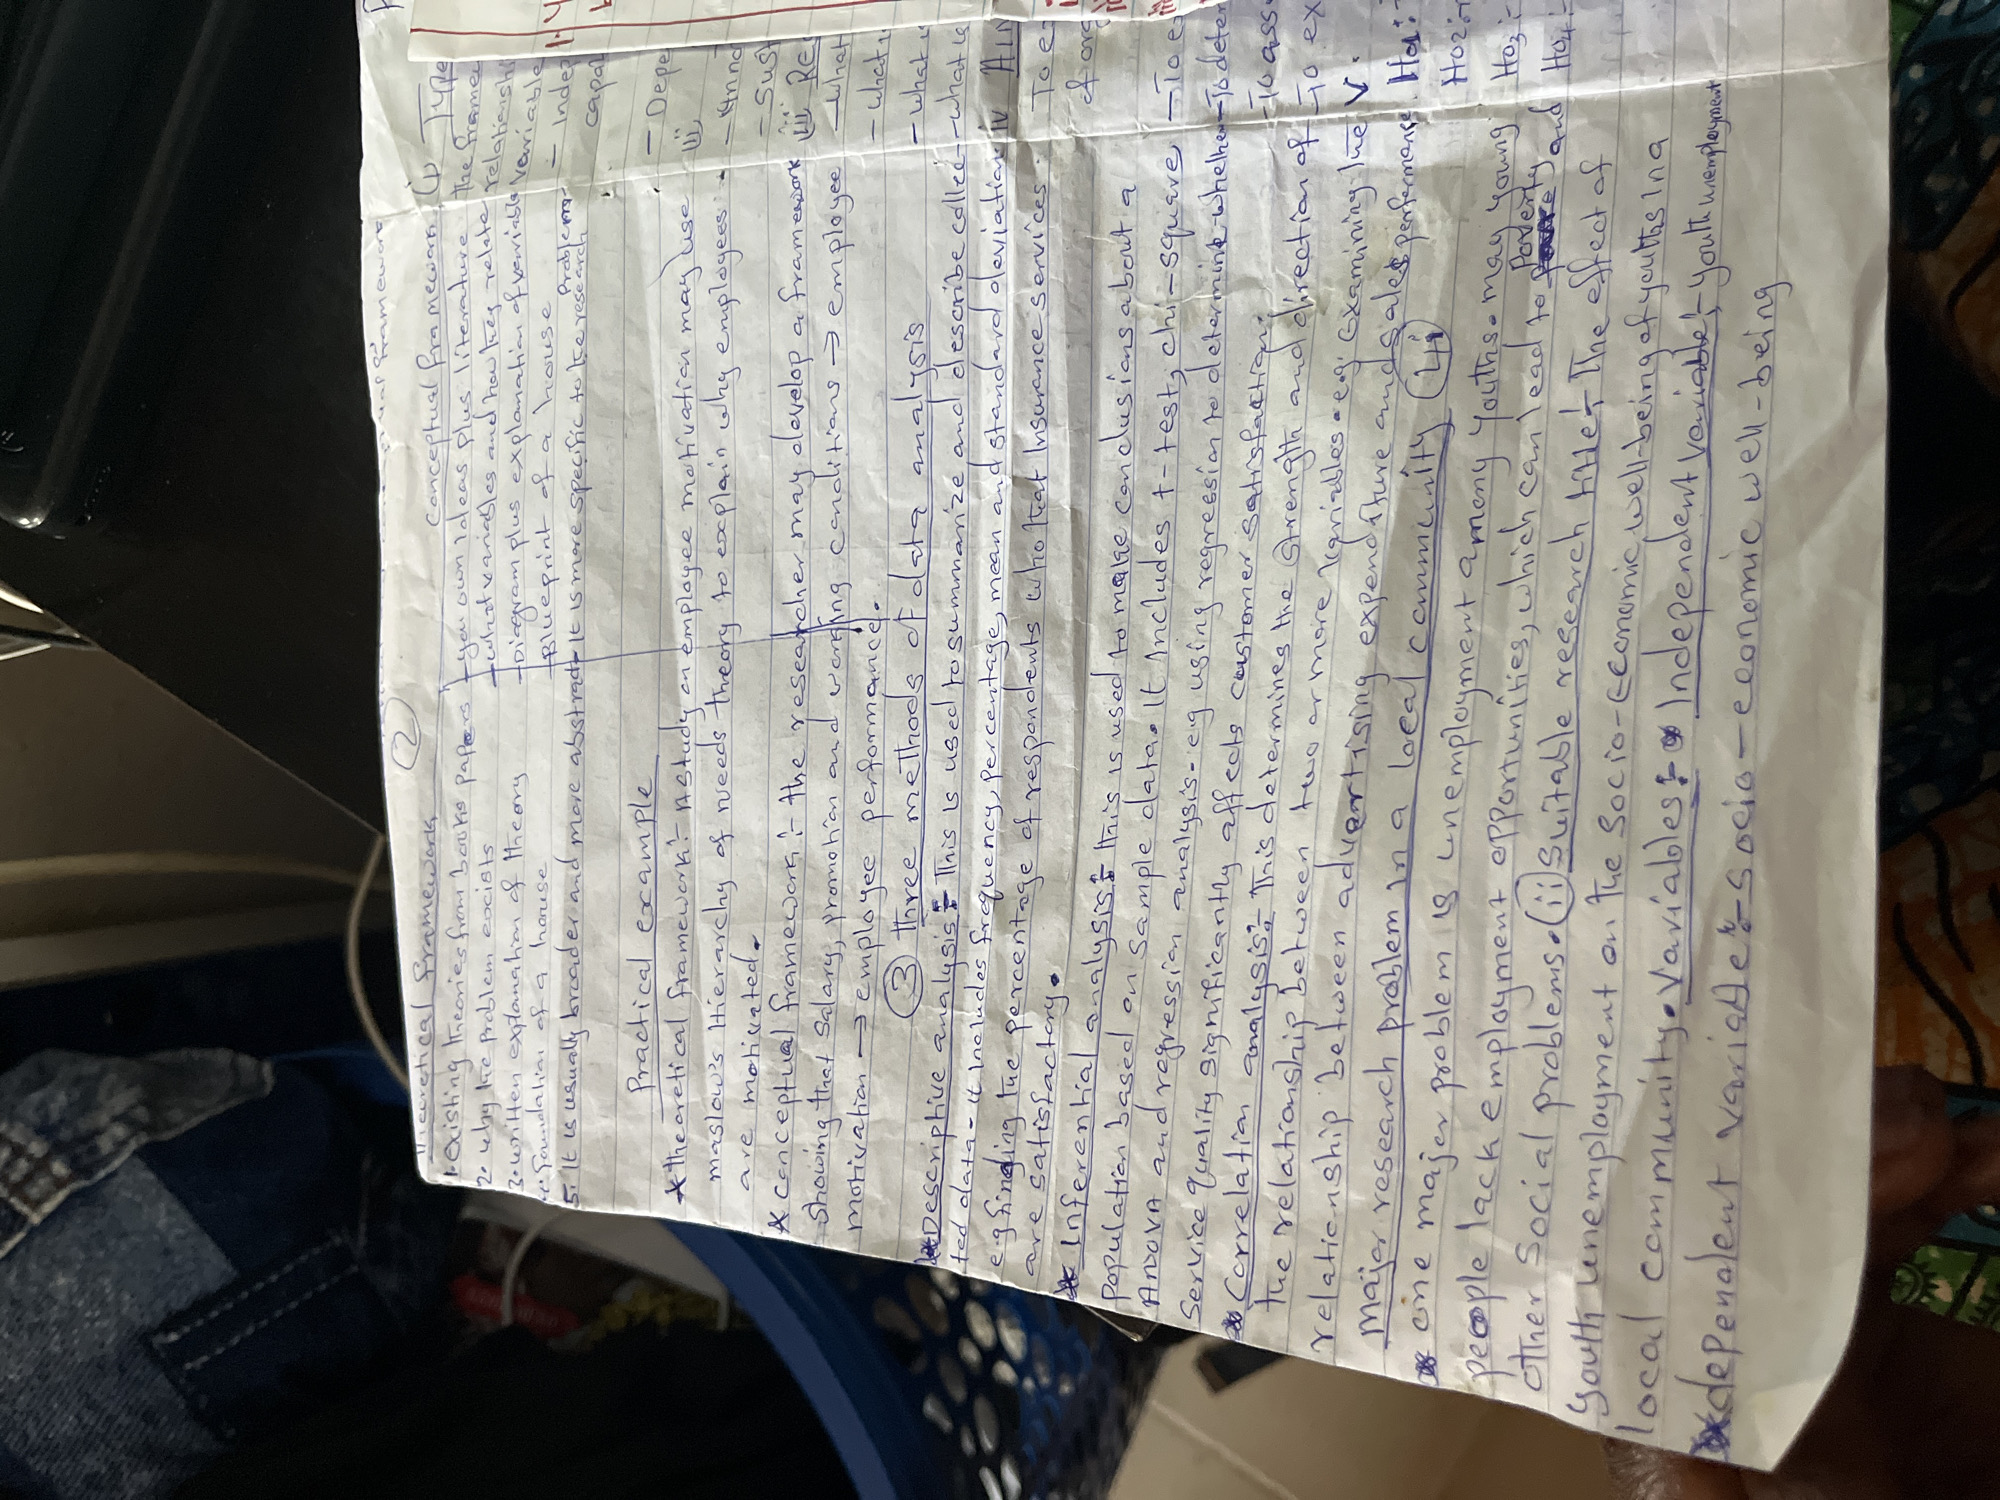 2
Theoretical Framework
conceptual framework
1. existing theories from books papers
- you own ideas plus literature
2. why the problem excists
- what variables and how they relate
3. written explanation of theory
- Diagram plus explanation of variable
4. foundation of a house
- Blueprint of a house
5. It is usually broader and more abstract
- It is more specific to the research problem
Practical example
* theoretical framework:- A study on employee motivation may use
maslow's Hierarchy of needs theory to explain why employees
are motivated.
* conceptual framework:- the researcher may develop a framework
showing that salary, promotion and working conditions → employee
motivation → employee performance.
3 three methods of data analysis
* Descriptive analysis:- This is used to summarize and describe collec-
ted data- it includes frequency, percentage, mean and standard deviation
eg finding the percentage of respondents who that Insurance services
are satisfactory.
* Inferential analysis:- this is used to make conclusions about a
population based on sample data. It includes t-test, chi-square
ANOVA and regression analysis- eg using regression to determine whether
service quality significantly affects customer satisfaction.
* Correlation analysis:- This determines the strength and direction of
the relationship between two or more variables. eg examining the
relationship between advertising expenditure and sales performance
major research problem in a local community 4i
* one major problem is unemployment among youths. may young
people lack employment opportunities, which can lead to Poverty and
other social problems. (ii) suitable research title:- The effect of
youth unemployment on the socio-economic well-being of youths in a
local community. variables:- Independent variable:- youth unemployment
* dependent variable:- socio-economic well-being
Type
The frame
relationshi
variable
- Indep
capa
- Depe
- Sus
- what
- what
- what
- what
To e
of org
- To e
- To deter
- To asse
- To ex
V.
Ha:-
Ho2:-
Ho3:-
Ho4:-